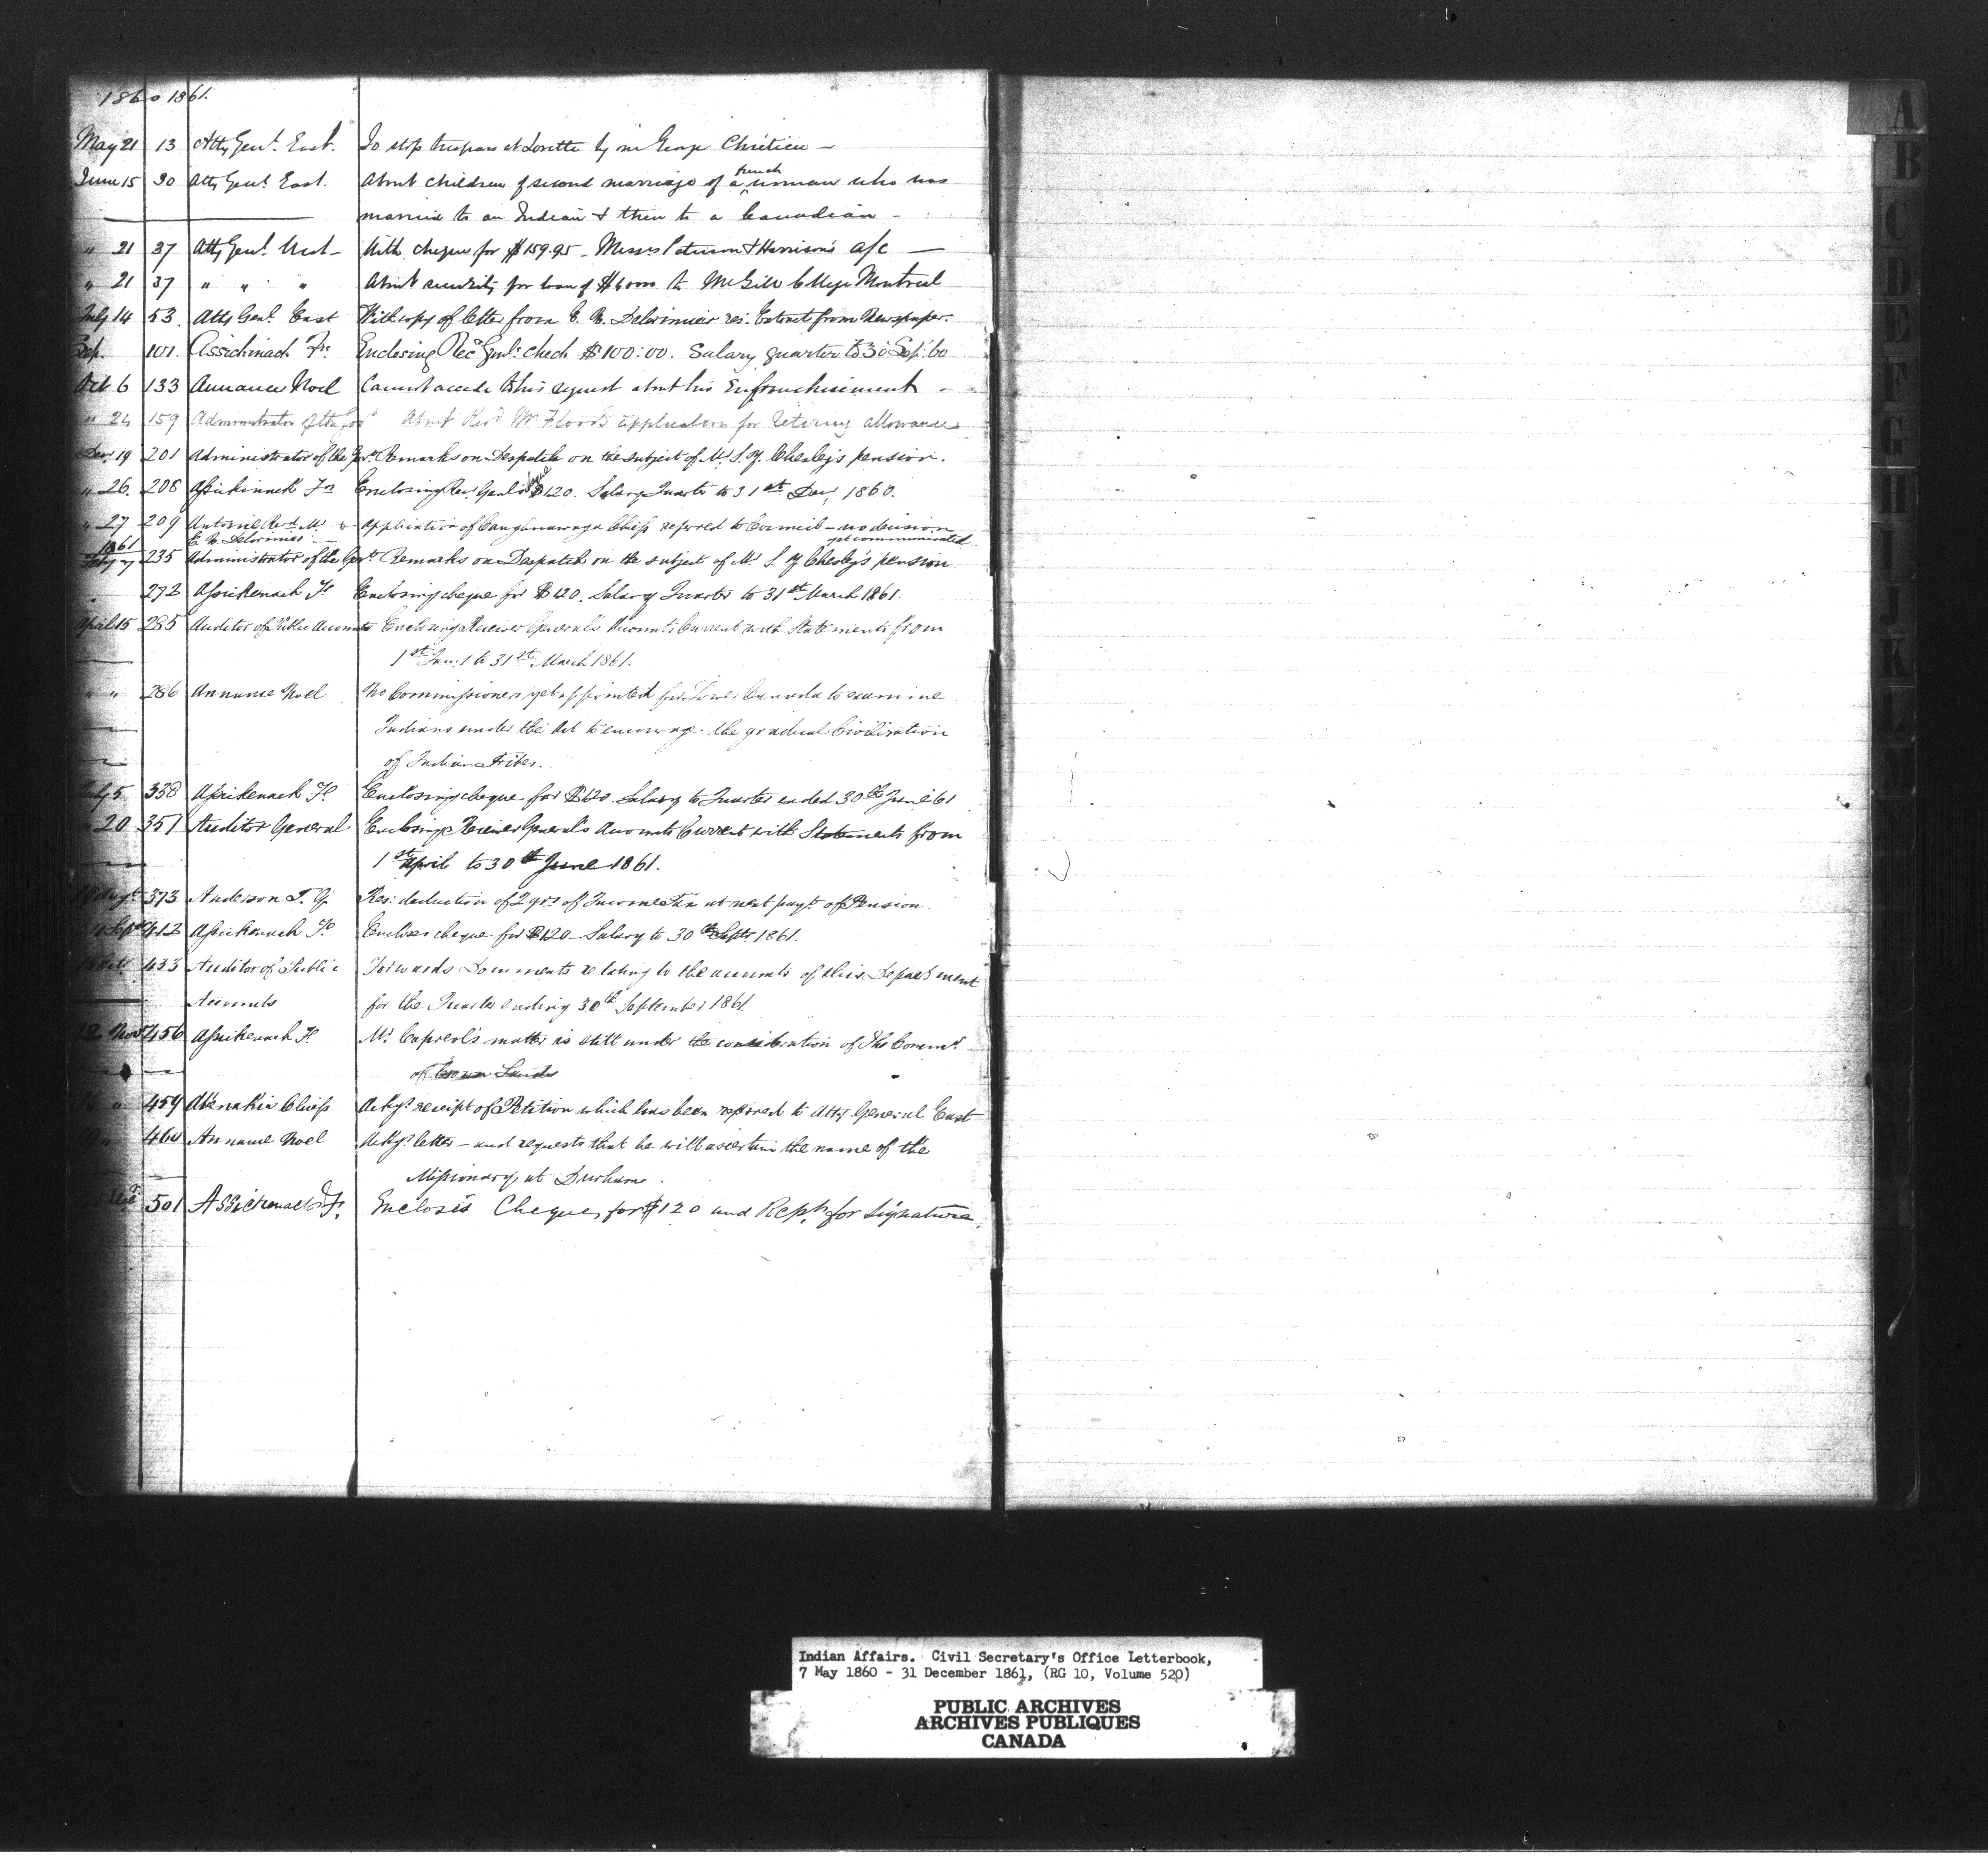 1860 1861.
May 21 13 Atty Genl. East. To stop trespass at Lorette by one George Chrétien —
June 15 30 Atty Genl East. About children of second marriage of a french woman who was
married to an Indian & then to a Canadian -
" 21 37 Atty Genl West - With cheque for $159.95 - Messrs Paterson & Harrison's a/c —
" 21 37 " " " About security for loan of $6000 to McGill College Montreal
July 14 53 Atty Genl. East With copy of letter from E. N. Delorimier res: Extract from Newspaper.
Sep. 101. Assickinack Fs. Enclosing Rec. Genl's check $100:00. Salary quarter to 30 Sep: 60
Oct 6 133 Annance Noel Cannot accede to his request about his Enfranchisement -
" 24 159 Administrator of the Govt About Revd Mr Flood's application for retiring allowance
Dec. 19 201 Administrator of the Govt. Remarks on Despatch on the subject of Mr. S. Y. Chesley's pension.
" 26. 208 Assickinack Fs Enclosing Rec. Genl's cheque $120. Salary Quarter to 31st Dec, 1860.
" 27 209 Antoine Revd. M. & Application of Caughnawaga Chiefs referred to Council - no decision
E. N. Delorimier — yet communicated.
1861
Feby 7 235 Administrator of the Govt. Remarks on Despatch on the subject of Mr. S Y Chesley's pension.
272 Assickenack F. Enclosing cheque for $120. Salary Quarter to 31st March 1861.
April 15 285 Auditor of Public Accounts Enclosing Receiver General's Accounts Current with Statements from
1st Jan: to 31st March 1861.
" " 286 Annance Noel No Commissioners yet appointed for Lower Canada to examine
Indians under the Act to encourage the gradual Civilization
of Indian Tribes.
July 5 338 Assickenack F. Enclosing cheque for $120 Salary to Quarter ended 30th June 61
" 20 351 Auditor General Enclosing Receiver General's Accounts Current with Statements from
1st April to 30th June 1861.
Augt. 373 Anderson T. G. Res: deduction of 2 yrs of Income Tax at next payt. of Pension.
Sept 412 Assickenack F. Encloses cheque for $120 - Salary to 30th Septr. 1861.
Oct. 433 Auditor of Public Forwards Documents relating to the accounts of this Department
Accounts for the Quarter ending 30th September 1861
12 Nov 456 Assickenack F. Mr. Capreol's matter is still under the consideration of The Commr.
of Crown Lands
16 " 459 Abenakis Chiefs Ackgs. receipt of Petition which has been referred to Atty General East
19 " 460 Annance Noel Ackgs. letter - and requests that he will ascertain the name of the
Missionary at Durham.
Dec. 501 Assickenack F. Encloses Cheque for $120 and Rcpt. for signature.
A
B
C
D
E
F
G
H
I
J
K
L
M
N
O
P
Q
R
Indian Affairs. Civil Secretary's Office Letterbook,
7 May 1860 - 31 December 1861, (RG 10, Volume 520)
PUBLIC ARCHIVES
ARCHIVES PUBLIQUES
CANADA